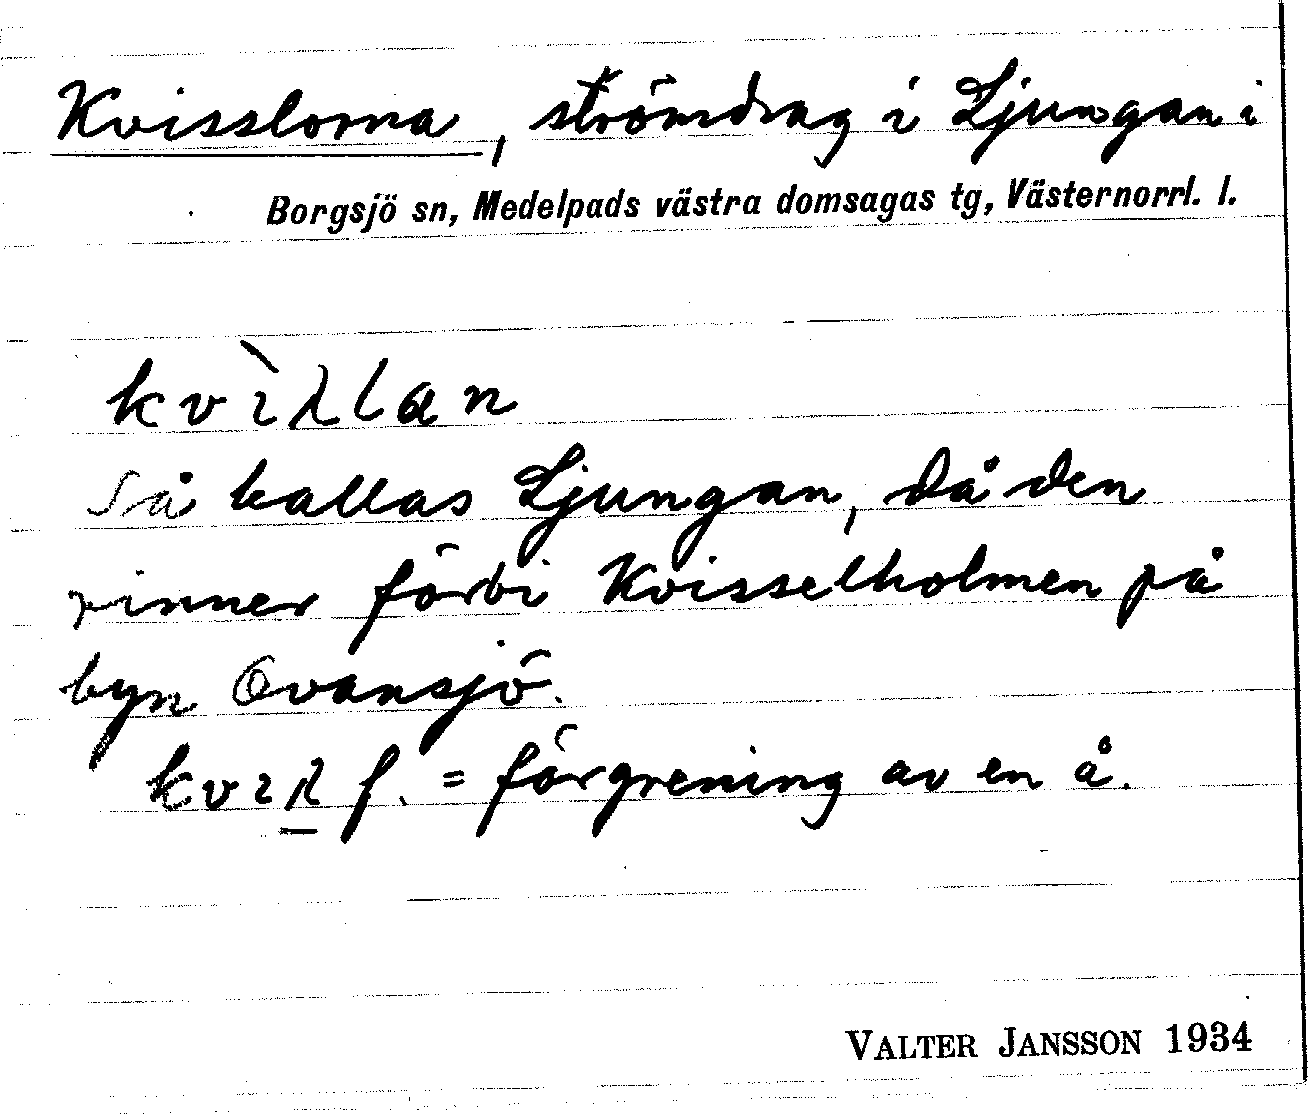 Kvisslorna, strömdrag i Ljungan i
Borgsjö sn, Medelpads västra domsagas tg, Västernorrl. l.
Så kallas Ljungan, då den
rinner förbi Kvisselholmen på
byn Ovansjö.
f. = förgrening av en å.
VALTER JANSSON 1934